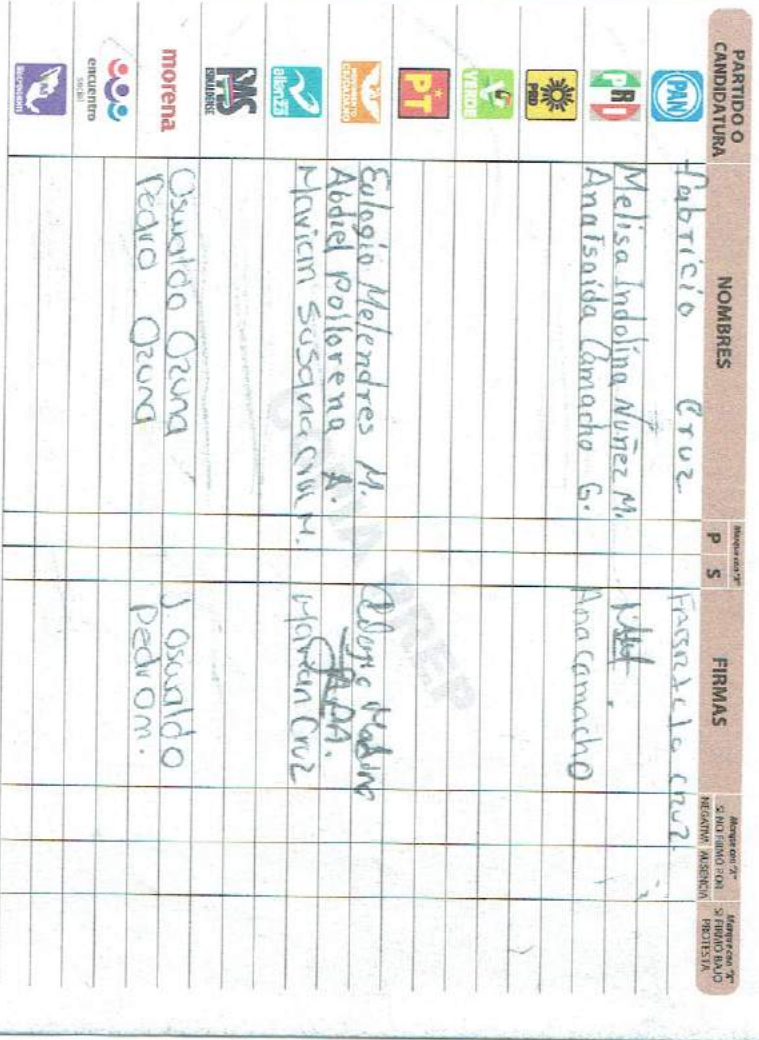 PARTIDO O CANDIDATURA
NOMBRES
Marque con "X"
P S
FIRMAS
Marque con "X" SI NO FIRMÓ POR
NEGATIVA AUSENCIA
Marque con "X" SI FIRMÓ BAJO PROTESTA
PAN
Fabricio Cruz
Cruz
PRI
Melisa Indolina Nuñez M.
Anaisaida Camacho G.
Ana Camacho
PRD
VERDE
PT
MOVIMIENTO CIUDADANO
Eulogio Melendres M.
Abdiel Pollorena A.
alianza
Marian Susana Cruz N.
Marian Cruz
PAS
SINALOENSE
morena
Oswaldo Ozuna
J. Oswaldo
Pedro Ozuna
Pedro
encuentro
social
COPIA PREP